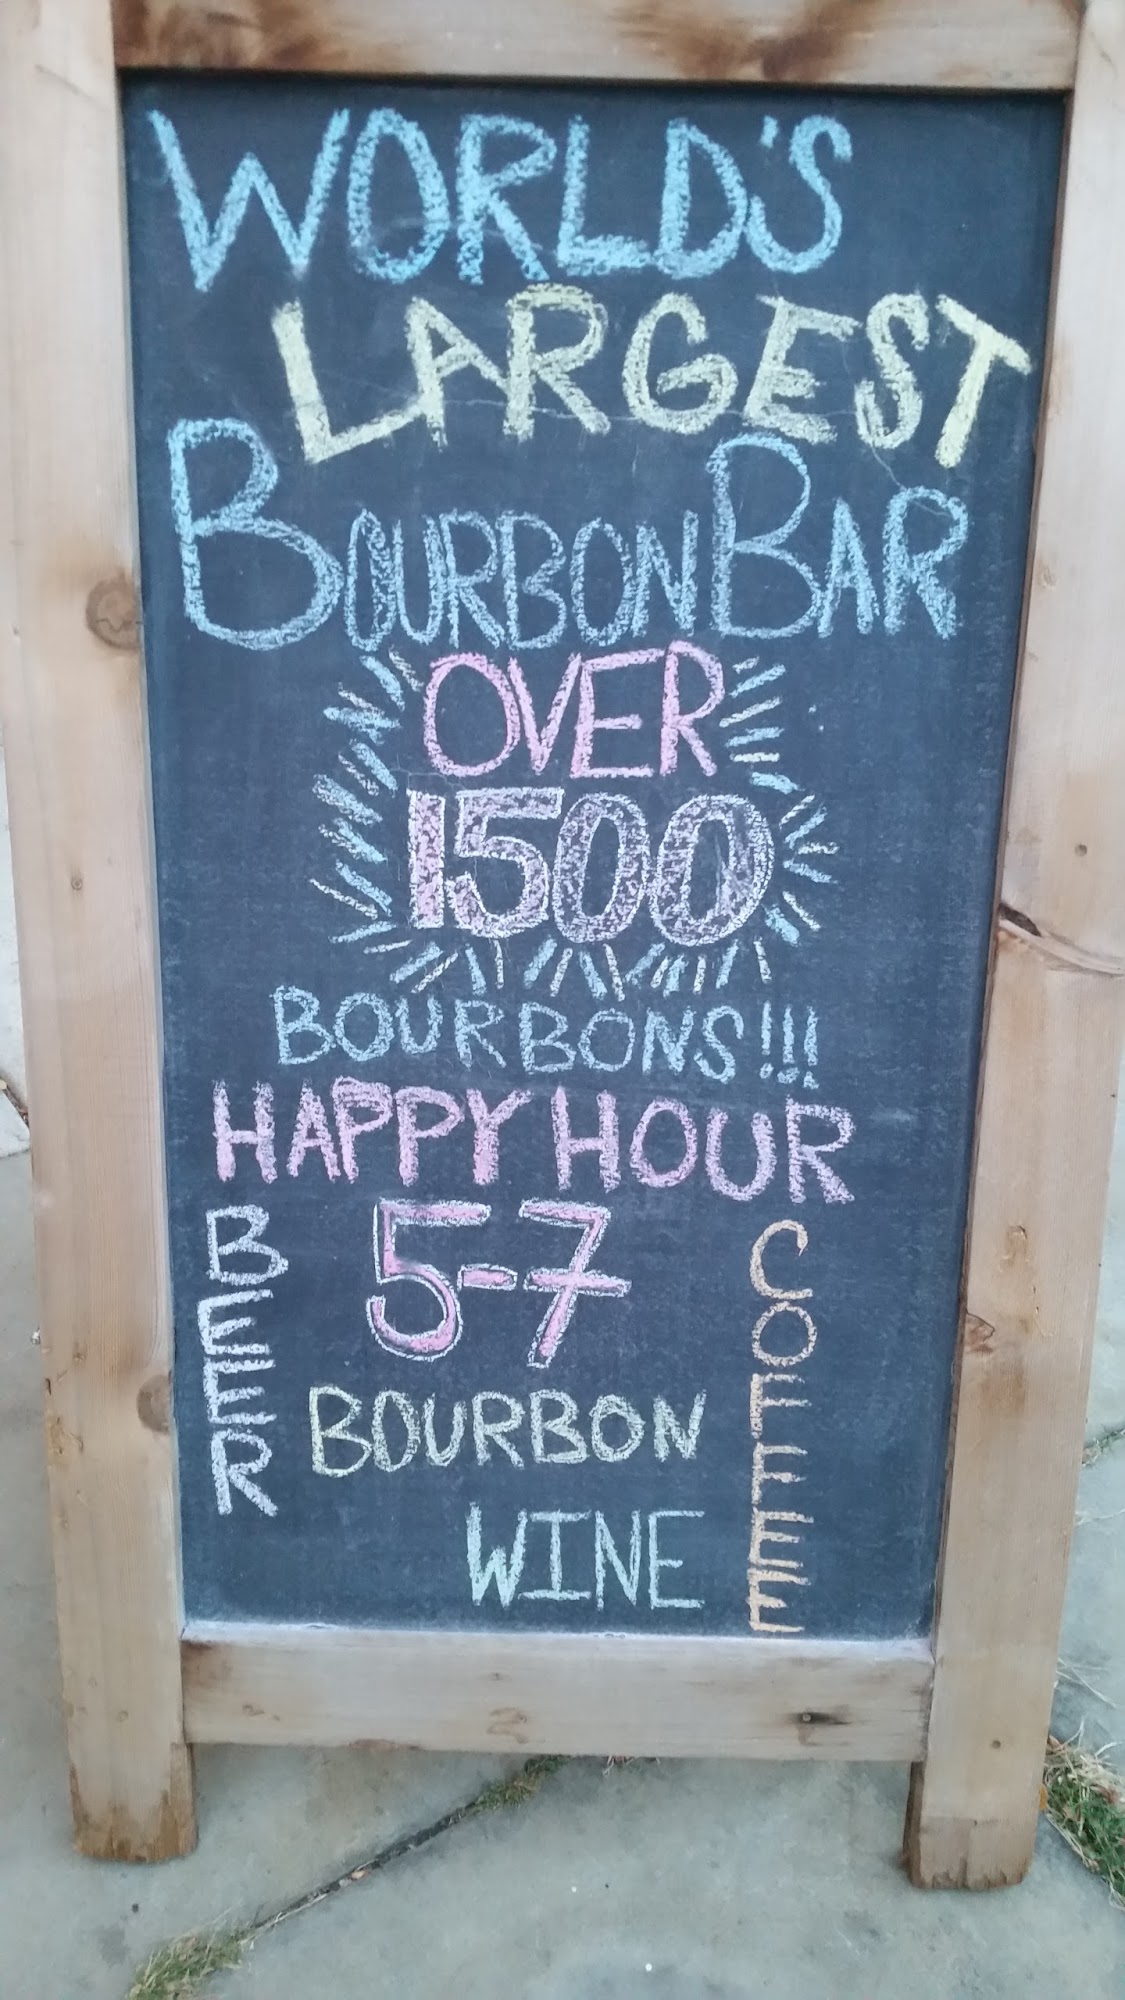 WORLD'S
LARGEST
BOURBON BAR
OVER
1500
BOURBONS!!!
HAPPY HOUR
5-7
BEER
BOURBON
WINE
COFFEE